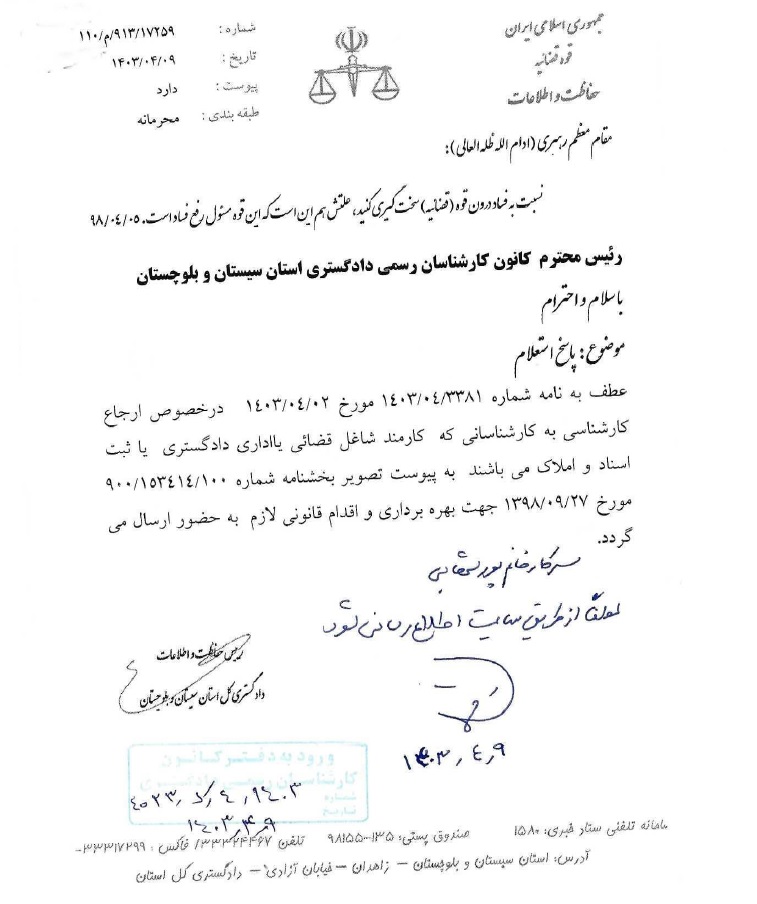 جمهوری اسلامی ایران
قوه قضائیه
حفاظت و اطلاعات
شماره: ۱۱۰/م/۹۱۳/۱۷۲۵۹
تاریخ: ۱۴۰۳/۰۴/۰۹
پیوست: دارد
طبقه بندی: محرمانه
مقام معظم رهبری (ادام الله ظله العالی):
نسبت به فساد درون قوه (قضائیه) سخت گیری کنید، علتش هم این است که این قوه مسئول رفع فساد است. ۹۸/۰۴/۰۵
رئیس محترم کانون کارشناسان رسمی دادگستری استان سیستان و بلوچستان
باسلام و احترام
موضوع: پاسخ استعلام
عطف به نامه شماره ۱۴۰۳/۰۴/۳۳۸۱ مورخ ۱۴۰۳/۰۴/۰۲ درخصوص ارجاع
کارشناسی به کارشناسانی که کارمند شاغل قضائی یااداری دادگستری یا ثبت
اسناد و املاک می باشند به پیوست تصویر بخشنامه شماره ۹۰۰/۱۵۳۴۱۴/۱۰۰
مورخ ۱۳۹۸/۰۹/۲۷ جهت بهره برداری و اقدام قانونی لازم به حضور ارسال می
گردد.
سرکار خانم
لطفاً از طریق سایت اطلاع رسانی شود
رئیس حفاظت و اطلاعات
دادگستری کل استان سیستان و بلوچستان
۱۴۰۳٫۴٫۹
ورود به دفتر کانون
کارشناسان رسمی دادگستری
شماره
تاریخ
۱۴۰۳٫۴٫۹
سامانه تلفنی ستاد خبری: ۱۵۸۰ صندوق پستی: ۱۳۵-۹۸۱۵۵ تلفن ۳۳۲۲۴۴۶۷/ فاکس: ۳۳۳۱۷۲۹۹-
آدرس: استان سیستان و بلوچستان – زاهدان – خیابان آزادی – دادگستری کل استان